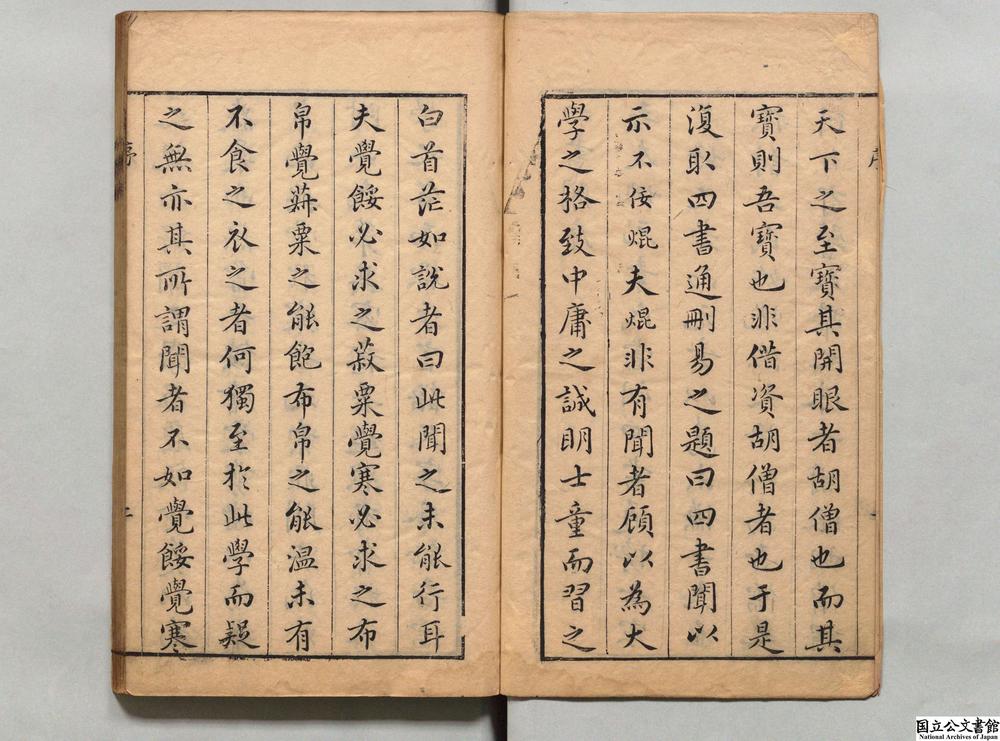 天下之至寶其開眼者胡僧也而其
寶則吾寶也非借資胡僧者也于是
復取四書通刪易之題曰四書聞以
示不佞焜夫焜非有聞者顧以為大
學之格致中庸之誠明士童而習之
白首茫如說者曰此聞之未能行耳
夫覺餒必求之菽粟覺寒必求之布
帛覺菽粟之能飽布帛之能溫未有
不食之衣之者何獨至於此學而疑
之無亦其所謂聞者不如覺餒覺寒
序
国立公文書館
National Archives of Japan